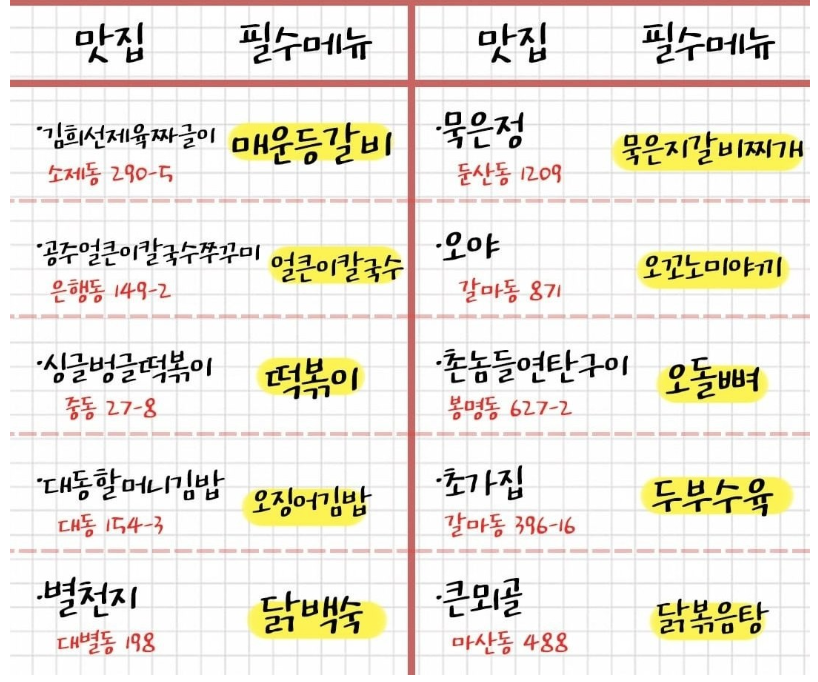 맛집 필수메뉴 맛집 필수메뉴
·김희선제육짜글이 매운등갈비
소제동 290-5
·공주얼큰이칼국수쭈꾸미 얼큰이칼국수
은행동 149-2
·싱글벙글떡볶이 떡볶이
중동 27-8
·대동할머니김밥 오징어김밥
대동 154-3
·별천지 닭백숙
대별동 198
·묵은정 묵은지갈비찌개
둔산동 1209
·오야 오꼬노미야끼
갈마동 871
·촌놈들연탄구이 오돌뼈
봉명동 627-2
·초가집 두부수육
갈마동 396-16
·큰뫼골 닭볶음탕
마산동 488